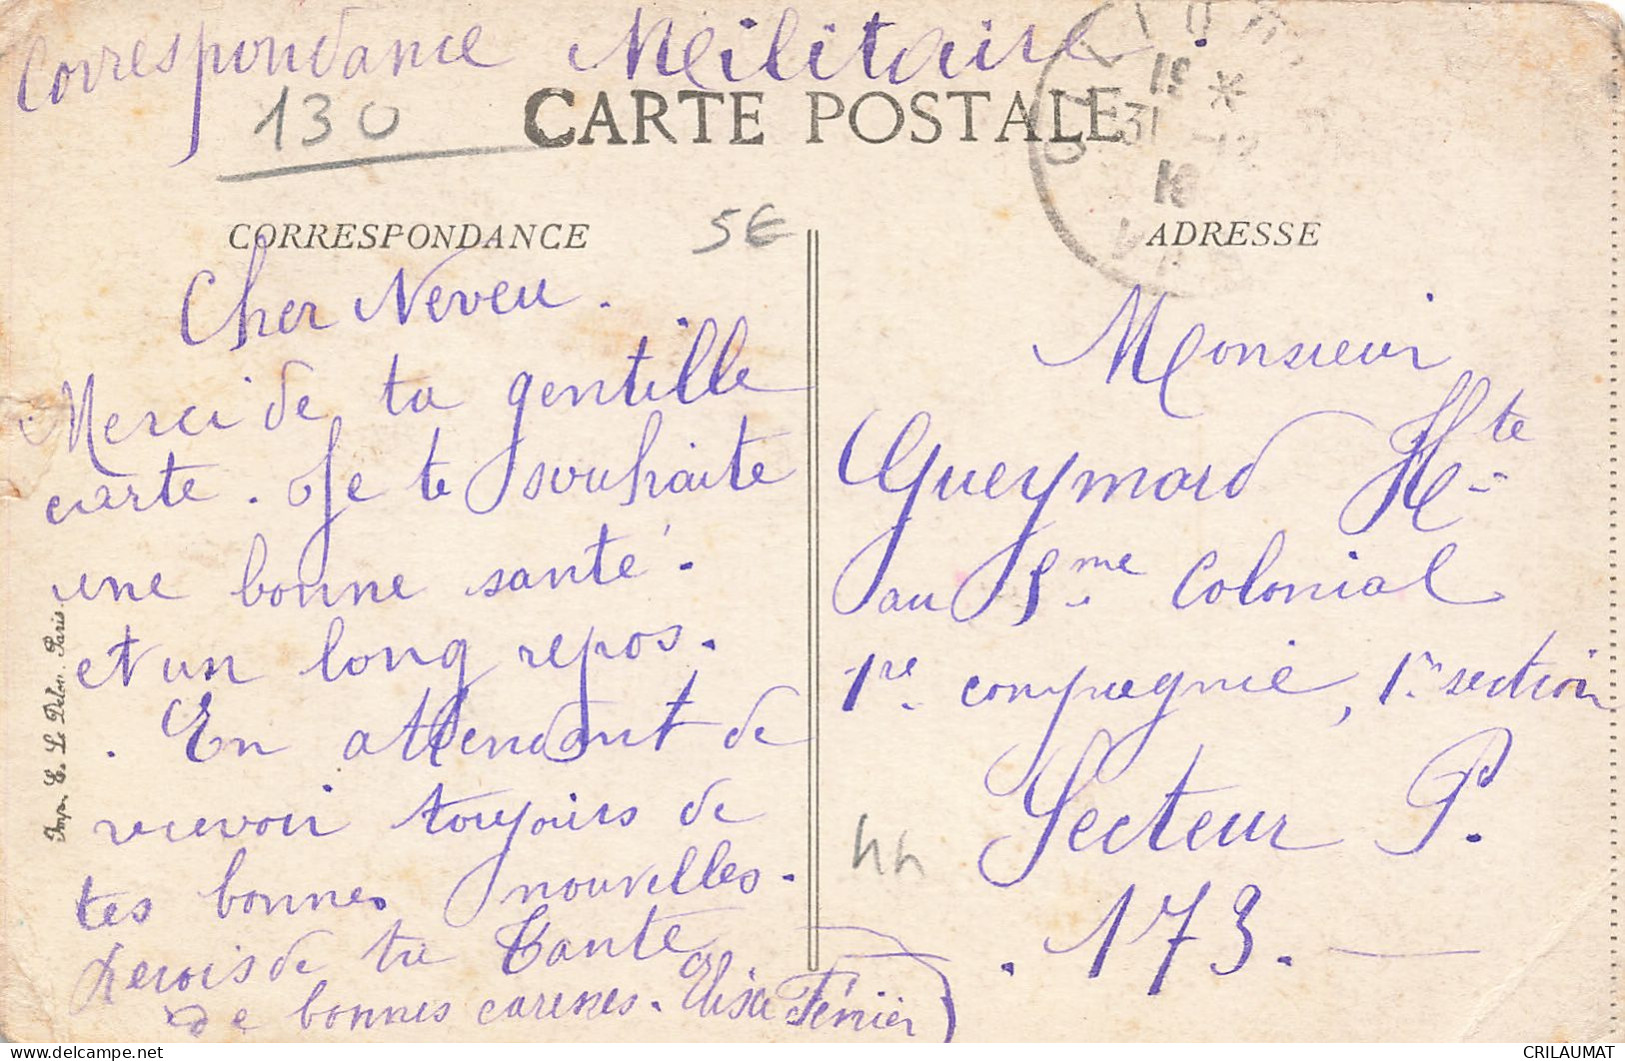 Correspondance Militaire.
130
CARTE POSTALE
19 *
31 - 12
16
VAR
CORRESPONDANCE
5€
ADRESSE
Cher Neveu.
Merci de ta gentille
carte. Je te souhaite
une bonne santé.
et un long repos.
. En attendant de
recevoir toujours de
tes bonnes nouvelles.
Reçois de ta Tante
de bonnes caresses. Elise Férrier
Imp. E. Le Deley. Paris.
Monsieur
Gueymard Hte
au 5me Colonial
1re compagnie, 1re section
Secteur P.
. 173. —
44
CRILAUMAT